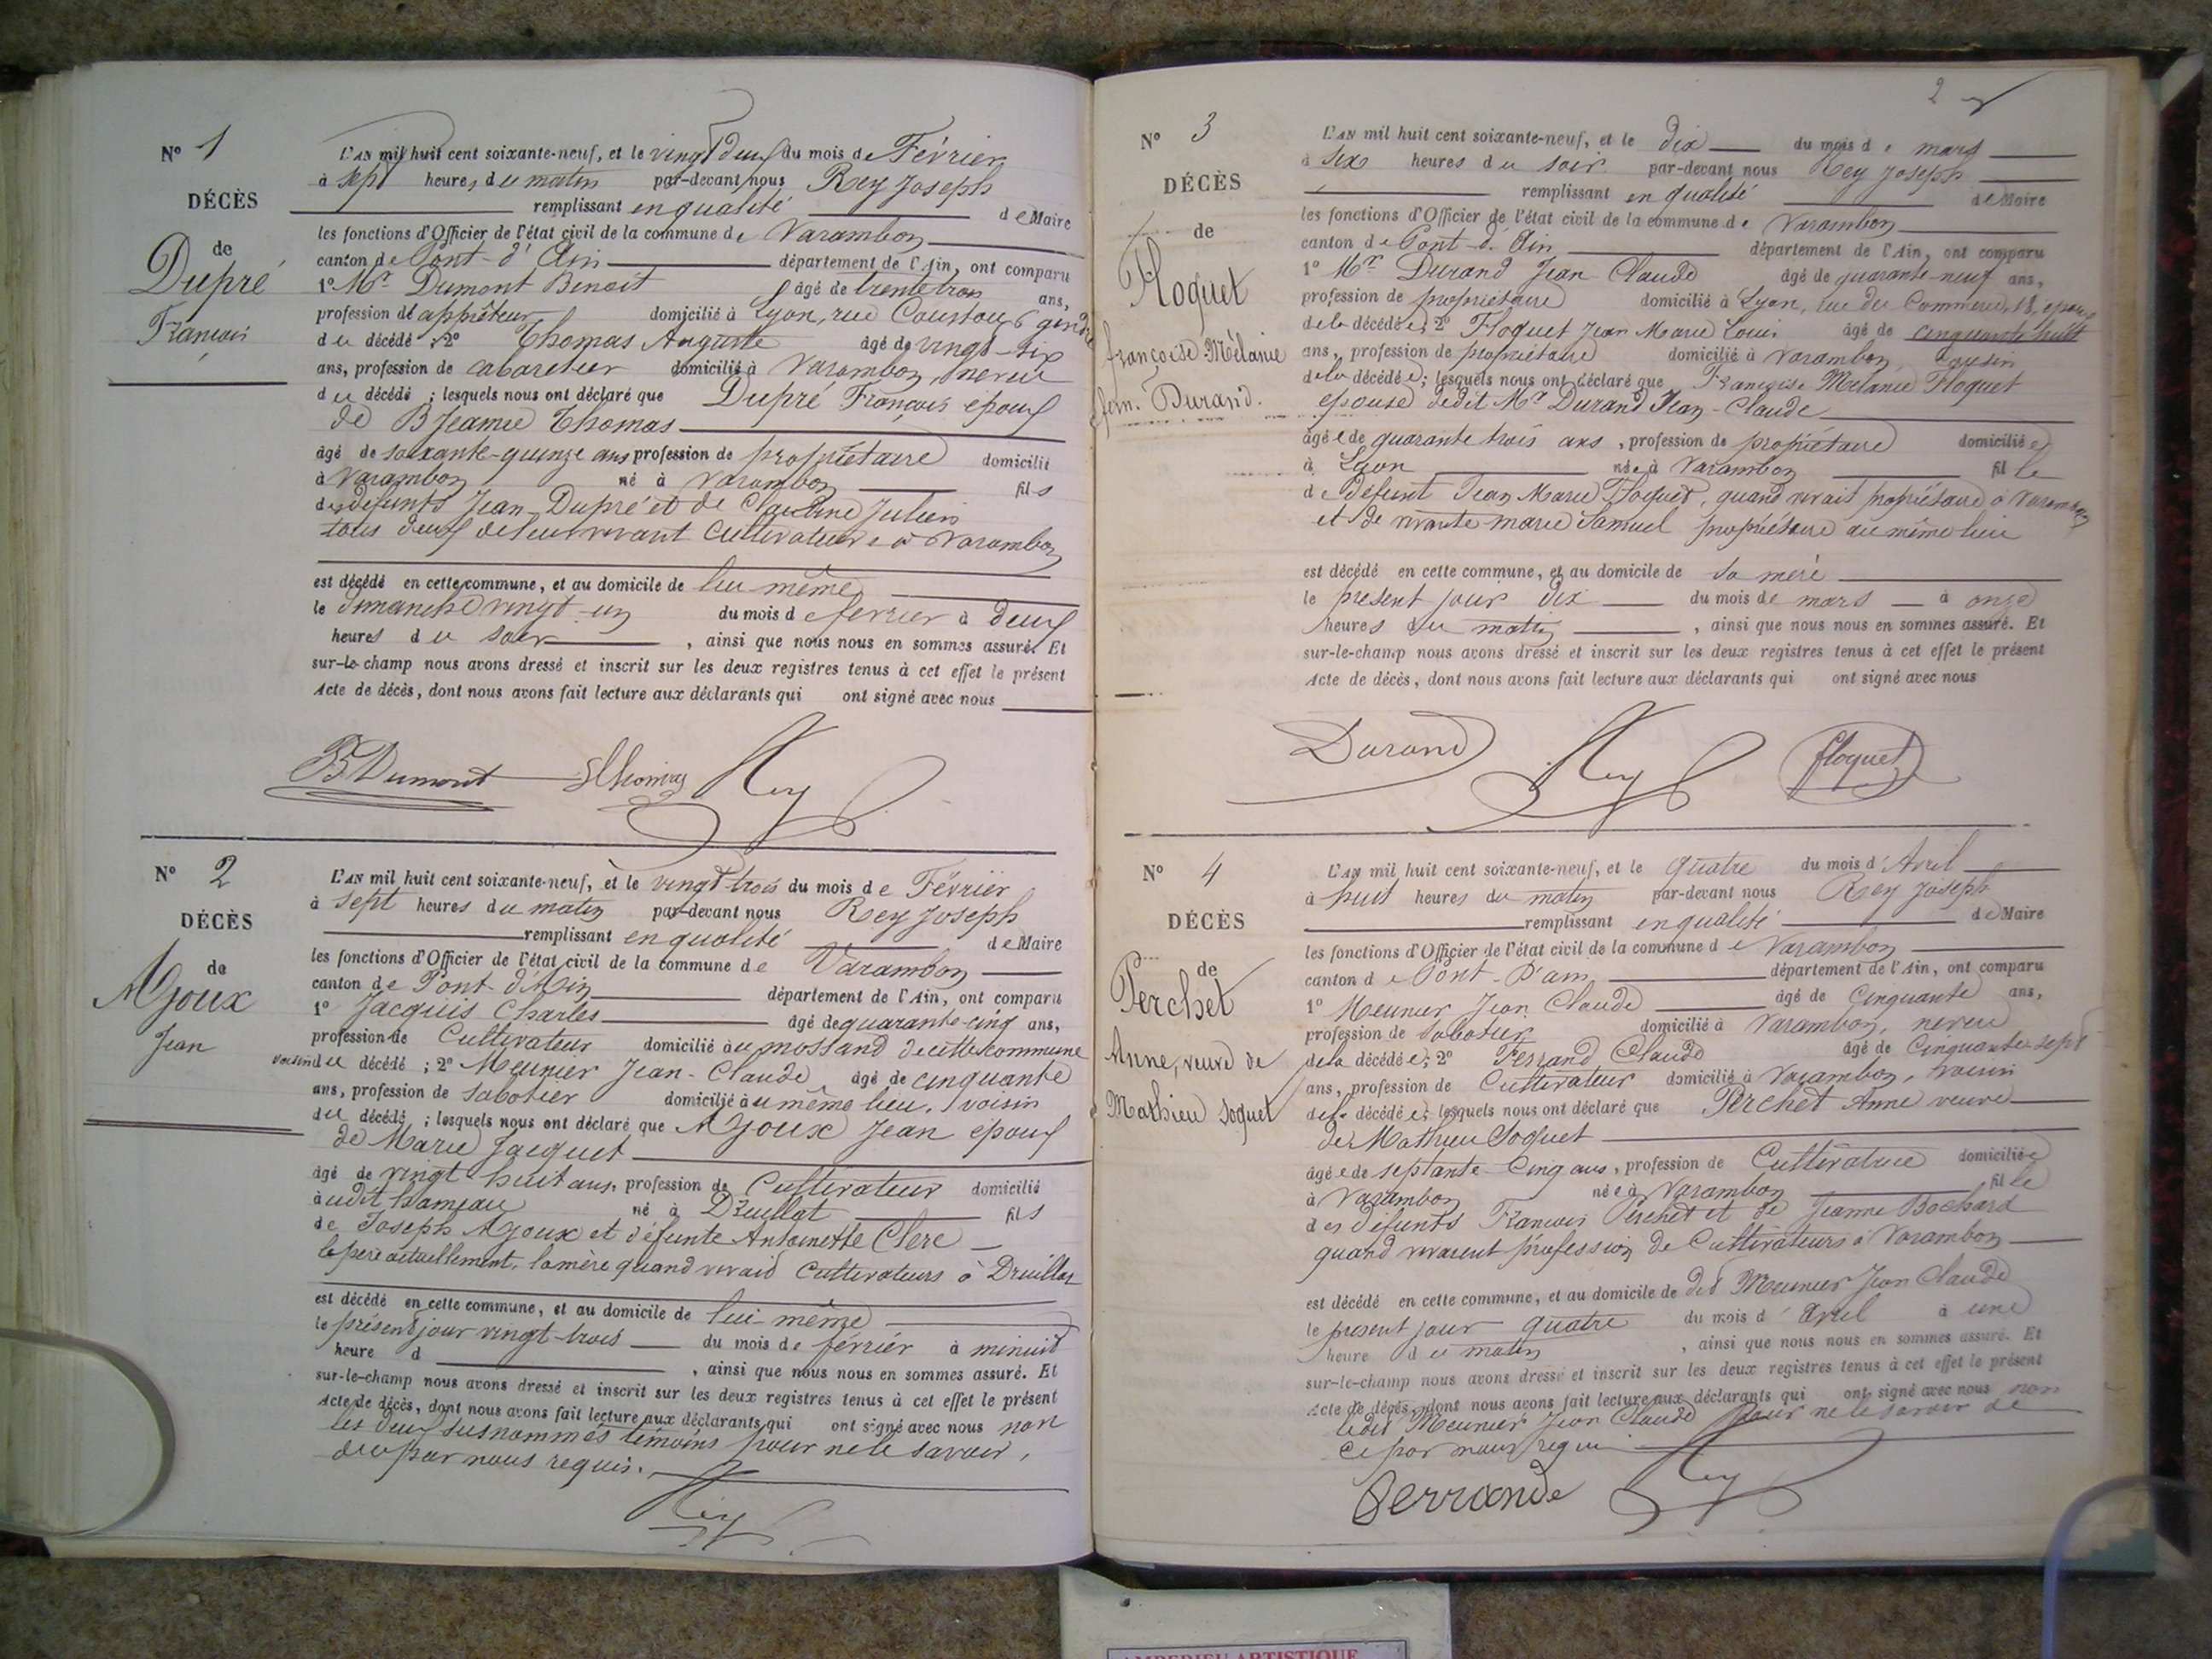 Nº 1
DÉCÈS
de
Dupré
François
L'AN mil huit cent soixante-neuf, et le vingt deux du mois de Février
à sept heures du matin par-devant nous Rey Joseph
remplissant en qualité de Maire
les fonctions d'Officier de l'état civil de la commune de Varambon
canton de Pont-d'Ain département de l'Ain, ont comparu
1º Mr Dumont Benoit âgé de trente trois ans,
profession d'appréteur domicilié à Lyon, rue Coustou, 6 gendre
du décédé ; 2º Thomas Auguste âgé de vingt-six
ans, profession de cabaretier domicilié à Varambon, neveu
du décédé ; lesquels nous ont déclaré que Dupré François epoux
de Bjeanne Thomas
âgé de soixante-quinze ans profession de propriétaire domicilié
à Varambon né à Varambon fils
des défunts Jean Dupré et de Claudine Julien
tous deux de leur vivant Cultivateurs à Varambon
est décédé en cette commune, et au domicile de lui même
le dimanche vingt-un du mois de fevrier à deux
heures du soir , ainsi que nous nous en sommes assuré. Et
sur-le-champ nous avons dressé et inscrit sur les deux registres tenus à cet effet le présent
Acte de décès, dont nous avons fait lecture aux déclarants qui ont signé avec nous
B Dumont Thomas Rey
Nº 2
DÉCÈS
de
Ajoux
Jean
L'AN mil huit cent soixante-neuf, et le vingt-trois du mois de Février
à sept heures du matin par-devant nous Rey Joseph
remplissant en qualité de Maire
les fonctions d'Officier de l'état civil de la commune de Varambon
canton de Pont-d'Ain département de l'Ain, ont comparu
1º Jacquis Charles âgé de quarante-cinq ans,
profession de Cultivateur domicilié au mossand de cette commune
voisin du décédé ; 2º Meunier Jean-Claude âgé de cinquante
ans, profession de Sabotier domicilié au même lieu, voisin
du décédé ; lesquels nous ont déclaré que Ajoux Jean epoux
de Marie Jacquet
âgé de vingt-huit ans, profession de Cultivateur domicilié
audit hameau né à Druillat fils
de Joseph Ajoux et défunte Antoinette Clerc
le père actuellement, la mère quand vivait Cultivateurs à Druillat
est décédé en cette commune, et au domicile de lui-même
le présent jour vingt-trois du mois de février à minuit
heure d , ainsi que nous nous en sommes assuré. Et
sur-le-champ nous avons dressé et inscrit sur les deux registres tenus à cet effet le présent
Acte de décès, dont nous avons fait lecture aux déclarants qui ont signé avec nous non
les deux susnommés témoins pour ne le savoir,
de ce par nous requis.
Rey
2
Nº 3
DÉCÈS
de
Floquet
françoise-Mélanie
fem. Durand.
L'AN mil huit cent soixante-neuf, et le dix du mois de mars
à six heures du soir par-devant nous Rey Joseph
remplissant en qualité de Maire
les fonctions d'Officier de l'état civil de la commune de Varambon
canton de Pont-d'Ain département de l'Ain, ont comparu
1º Mr Durand Jean Claude âgé de quarante-neuf ans,
profession de propriétaire domicilié à Lyon, rue du Commerce, 18, epoux
de la décédée ; 2º Floquet Jean Marie Louis âgé de cinquante huit
ans, profession de propriétaire domicilié à Varambon, cousin
de la décédée ; lesquels nous ont déclaré que Françoise Mélanie Floquet
epouse dudit Mr Durand Jean-Claude
âgée de quarante trois ans , profession de propriétaire domiciliée
à Lyon née à Varambon fille
de Défunt Jean Marie Floquet, quand vivait propriétaire à Varambon
et de vivante marie Samuel propriétaire au même lieu
est décédé en cette commune, et au domicile de sa mère
le présent jour dix du mois de mars à onze
heures du matin , ainsi que nous nous en sommes assuré. Et
sur-le-champ nous avons dressé et inscrit sur les deux registres tenus à cet effet le présent
Acte de décès, dont nous avons fait lecture aux déclarants qui ont signé avec nous
Durand Rey floquet
Nº 4
DÉCÈS
de
Perchet
Anne, veuve de
Mathieu Soquet
L'AN mil huit cent soixante-neuf, et le quatre du mois d'Avril
à huit heures du matin par-devant nous Rey Joseph
remplissant en qualité de Maire
les fonctions d'Officier de l'état civil de la commune de Varambon
canton de Pont-d'ain département de l'Ain, ont comparu
1º Meunier Jean Claude âgé de Cinquante ans,
profession de Sabotier domicilié à Varambon, neveu
de la décédée ; 2º Ferrand Claude âgé de Cinquante sept
ans, profession de Cultivateur domicilié à Varambon, voisin
de la décédée ; lesquels nous ont déclaré que Perchet Anne veuve
de Mathieu Soquet
âgée de septante-Cinq ans, profession de Cultivatrice domiciliée
à Varambon née à Varambon fille
des défunts François Perchet et de Jeanne Bochard
quand vivaient profession de Cultivateurs à Varambon
est décédé en cette commune, et au domicile de dit Meunier Jean Claude
le présent jour quatre du mois d'Avril à une
heure du matin , ainsi que nous nous en sommes assuré. Et
sur-le-champ nous avons dressé et inscrit sur les deux registres tenus à cet effet le présent
Acte de décès, dont nous avons fait lecture aux déclarants qui ont signé avec nous non
ledit Meunier Jean Claude pour ne le savoir de
ce par nous requis
ferrande Rey
AMBERIEU ARTISTIQUE